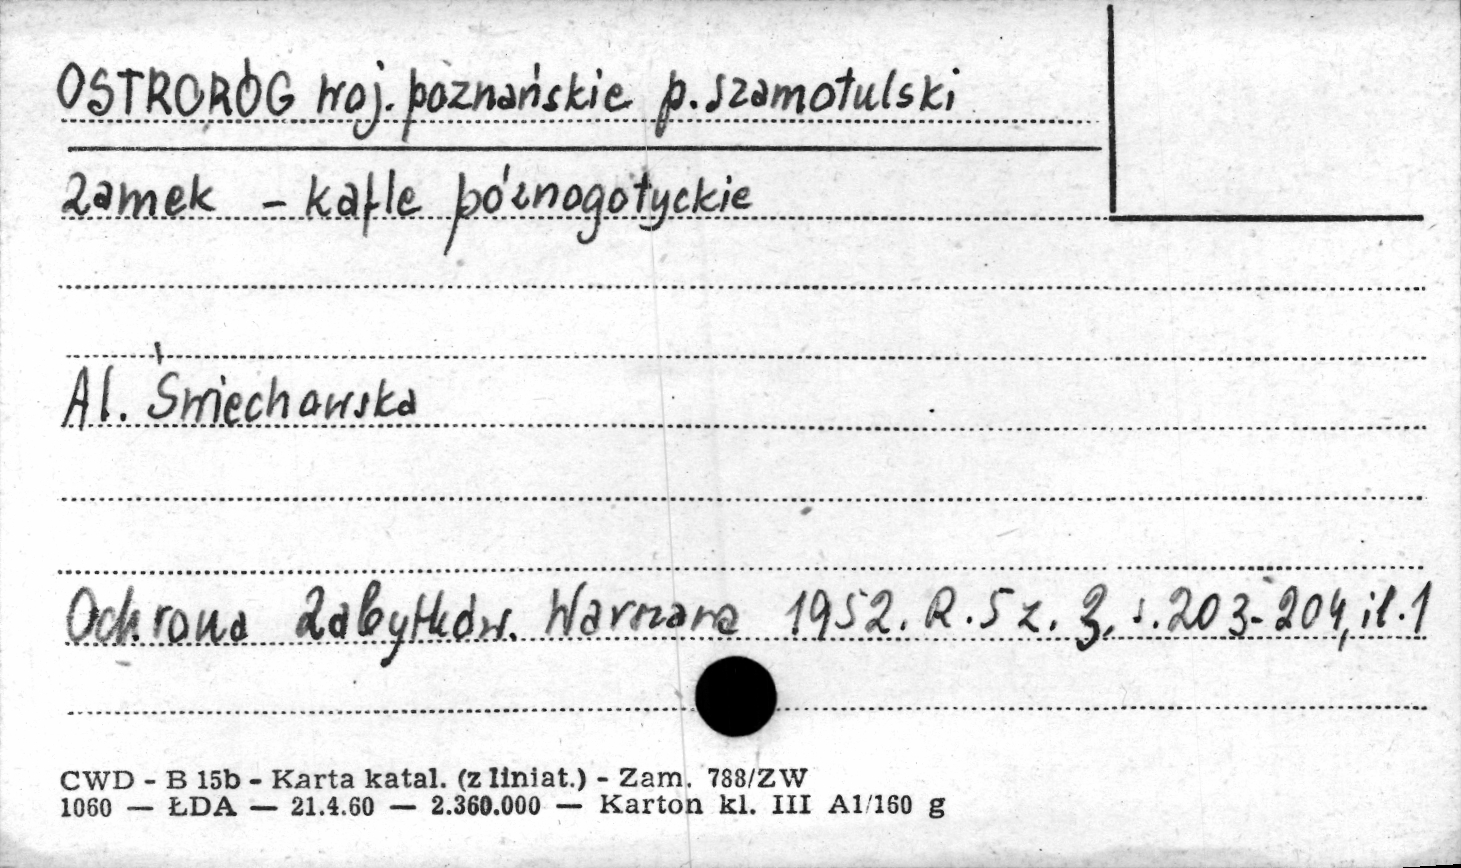 OSTRORÓG woj. poznańskie p. szamotulski
Zamek - kafle póżnogotyckie
Al. Świechowska
Ochrona Zabytków. Warszawa 1952. R. 5 z. 3, s. 203-204, il. 1
CWD - B 15b - Karta katal. (z liniat.) - Zam. 788/ZW
1060 — ŁDA — 21.4.60 — 2.360.000 — Karton kl. III A1/160 g